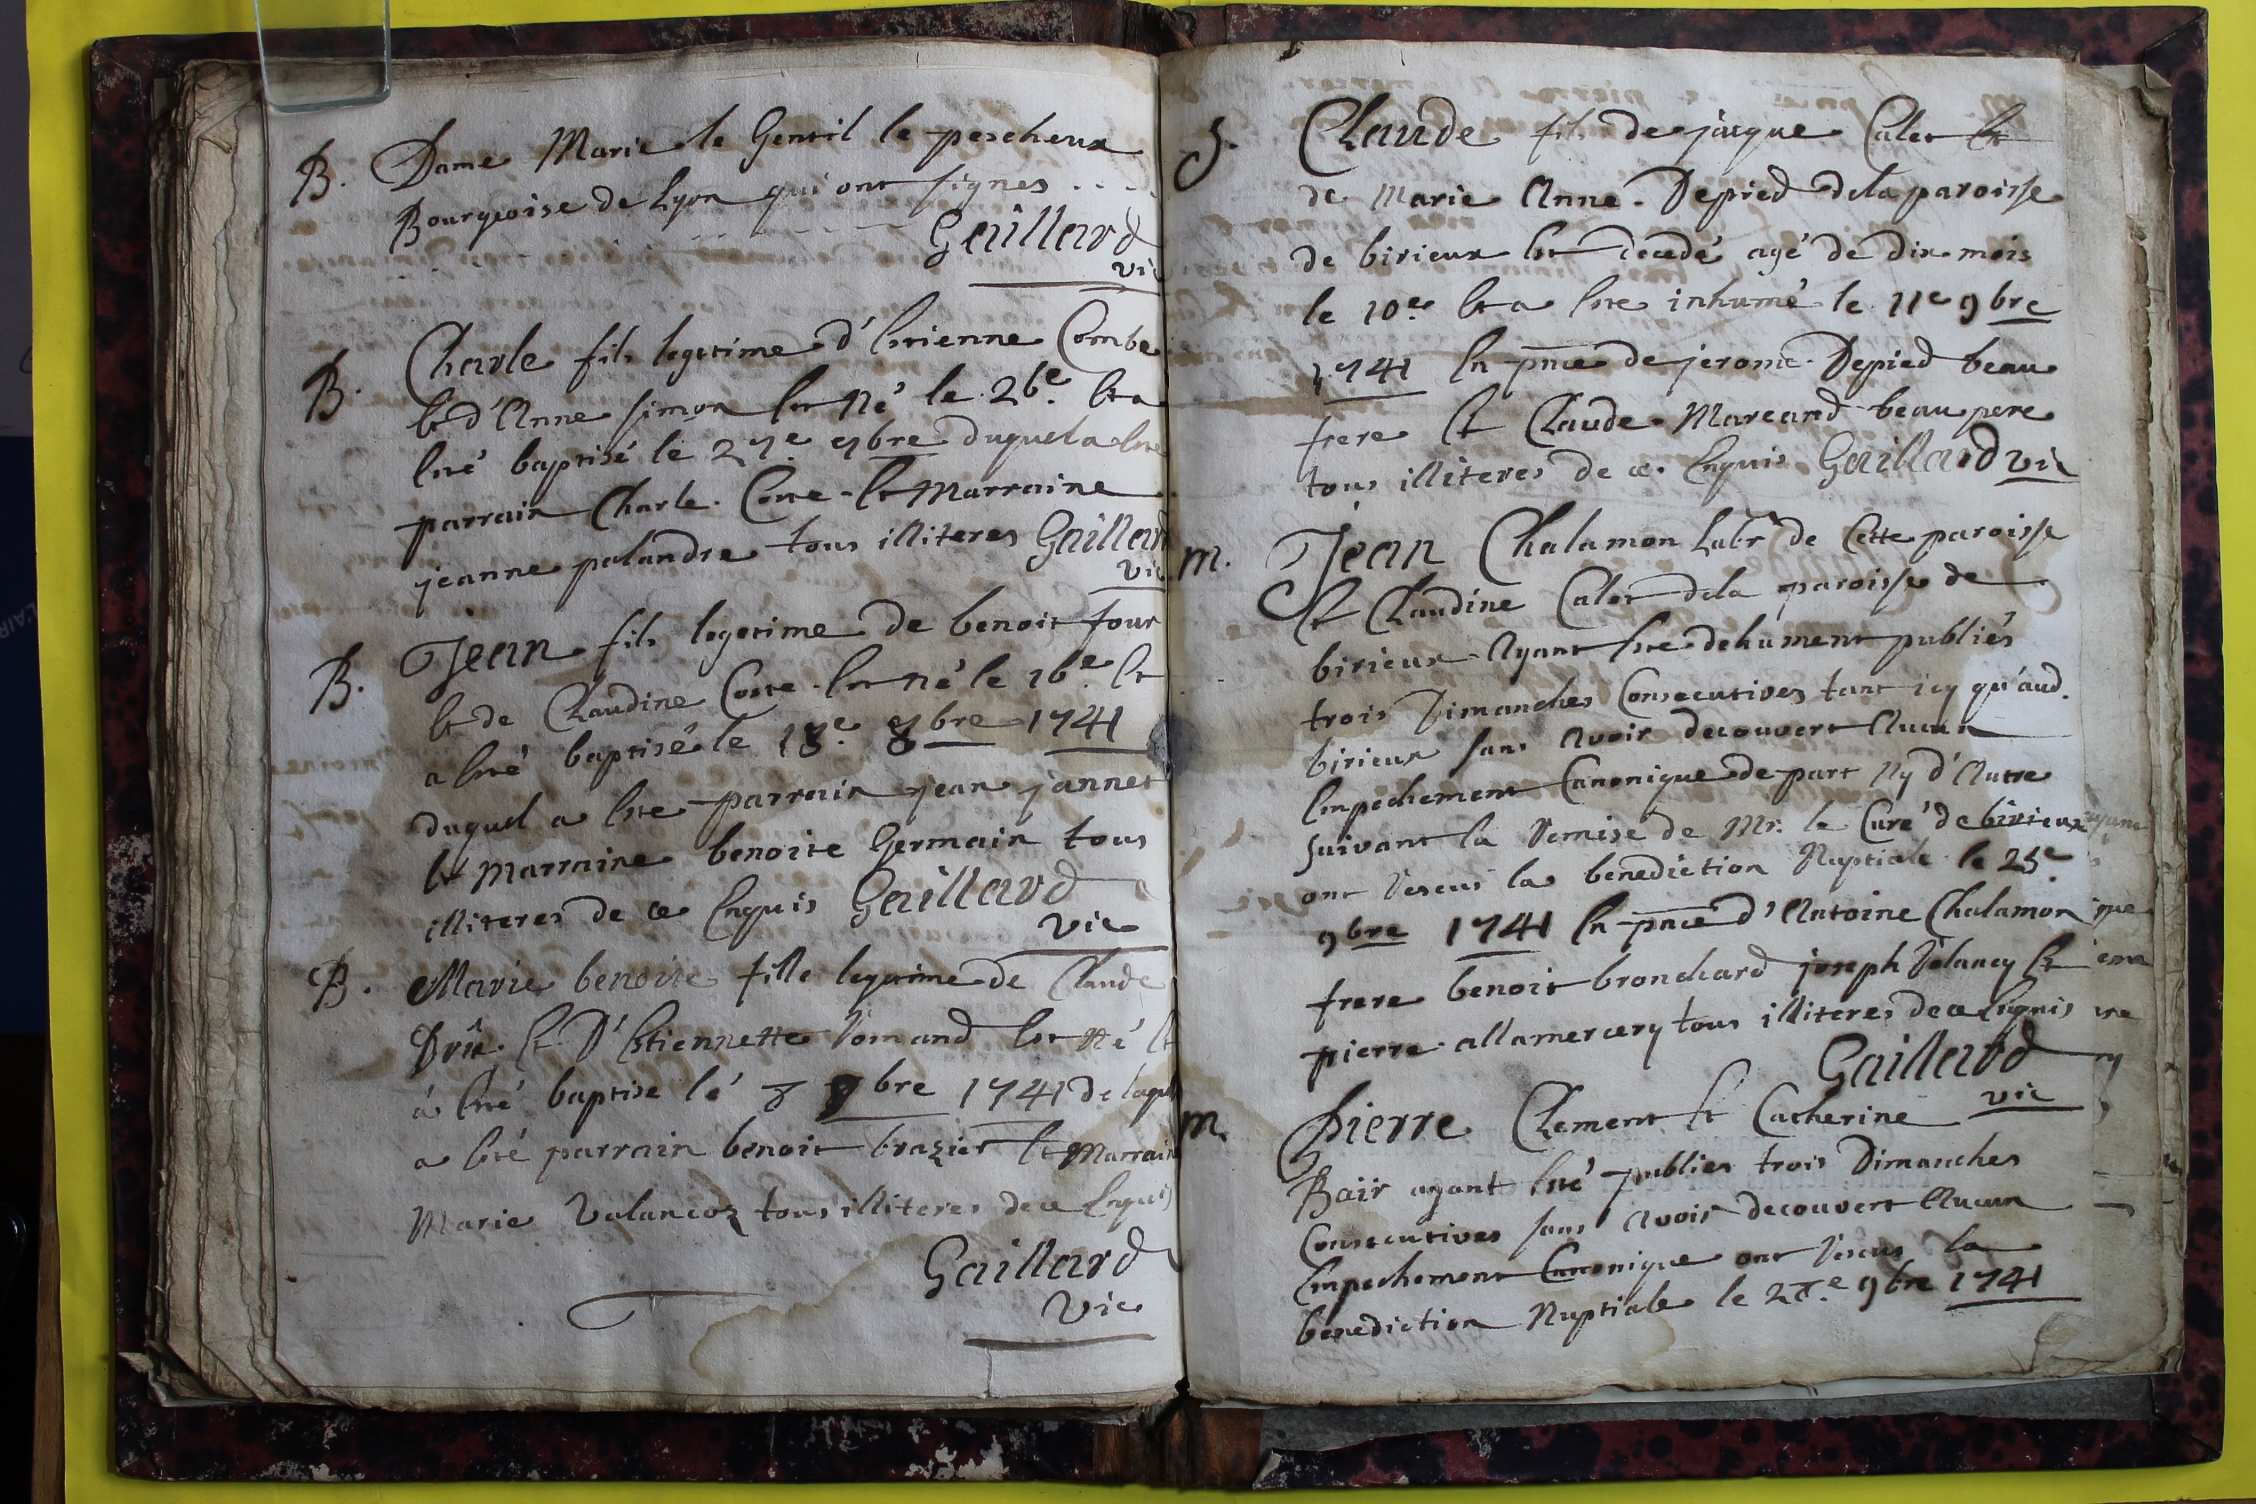 B. Dame Marie le Gentil le pescheux
Bourgeoise de Lyon qui ont signes . . . .
Gaillard
vic
B. Charle fils legitime d'Estienne Combe
Et d'Anne Simon Est Né le 26e. Et a
Eté baptisé le 27e. 9bre duquel a Ete
parrain Charle Coste Et Marraine
jeanne palandre tous illiteres Gaillard
vic
B. Jean fils legetime de benoit four
Et de Claudine Coste Est né le 16e. Et
a Eté baptisé le 18e. 9bre 1741
duquel a Ete parrain jean jannet
Et Marraine benoite Germain tous
illiteres de ce Enquis Gaillard
vic
B. Marie benoite fille legitime de Claude
Drû Et D'Estiennette Est Né Et
á Eté baptise lé 8 9bre 1741 de laquel
a Eté parrain benoit brazier Et Marrain
Marie Valancoz tous illiteres de ce Enquis
Gaillard
Vic
S. Claude fils de jacque Calet Et
de Marie Anne Depied dela paroisse
de birieux Est decedé agé de dix mois
le 10e. Et a Ete inhumé le 11e 9bre
1741 En pnce de jerome Depied beau
frere Et Claude Marcand beau pere
tous illiteres de ce Enquis Gaillard vic
M. Jean Chalamon Labr de Cette paroisse
Et Claudine Calet dela paroisse de
birieux Ayant Ete dehument publiés
trois Dimanches Consecutives tant icy qu'aud.
birieux sans Avoir decouvert Aucun
Empechement Canonique de part Ny d'Autre
Suivant la Remise de Mr. le Curé de birieux
ont Reseus la benediction Nuptiale le 25e.
9bre 1741 En pnce d'Antoine Chalamon
frere benoit bronchard joseph Et
pierre allamercery tous illiteres de ce Enquis
Gaillard
vic
M. Pierre Clement Et Catherine
Bair ayant Eté publies trois Dimanches
Consecutives sans Avoir decouvert Aucun
Empechement Canonique ont Reseus la
benediction Nuptiale le 28.e 9bre 1741